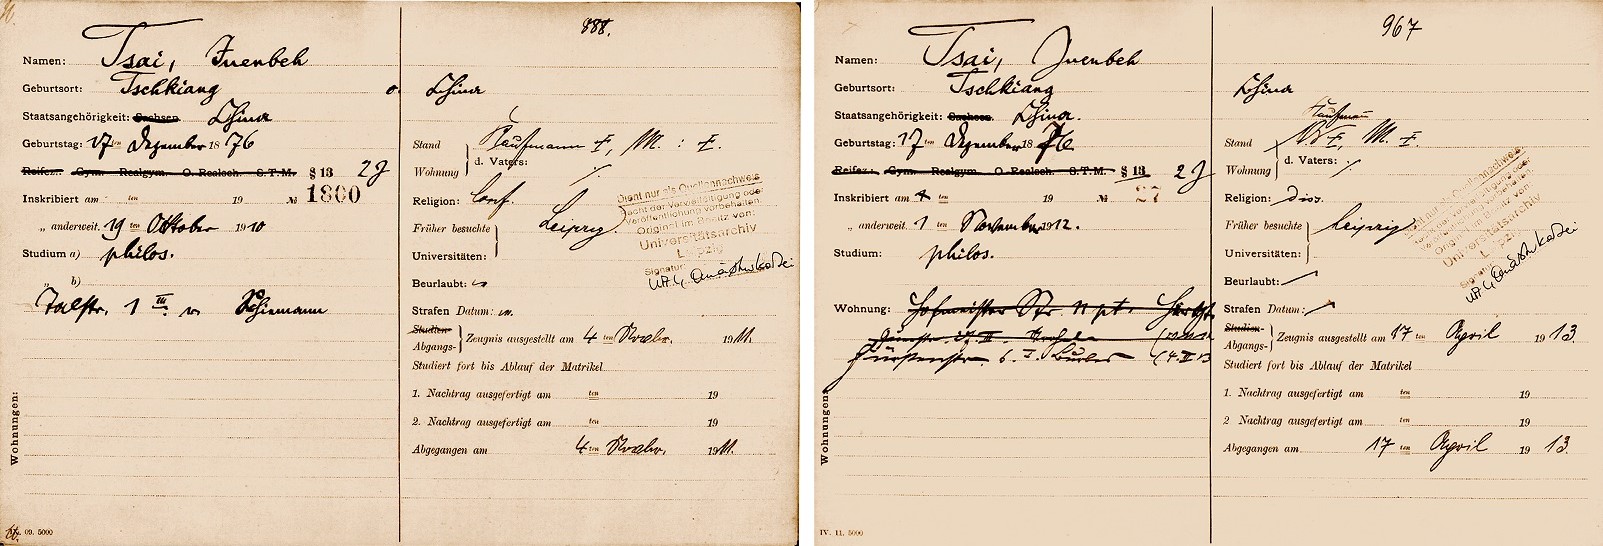 888.
Namen: Tsai, Juenbeh
Geburtsort: Tschkiang o. China
Staatsangehörigkeit: Sachsen China
Geburtstag: 17 ten Dezember 18 76
Reifez.: Gym. Realgym. O.-Realsch. S.T.M. § 13 2 J
Inskribiert am ten 19 № 1800
„ anderweit. 19 ten Oktober 1910
Studium a) philos.
„ b)
Talstr. 1 III. v. Thiemann
Wohnungen:
09. 5000
Stand
Kaufmann †, M. : †.
Wohnung
d. Vaters: /.
Religion: Conf.
Früher besuchte
Universitäten:
Leipzig.
Dient nur als Quellennachweis
Recht der Vervielfältigung oder
Veröffentlichung vorbehalten.
Original im Besitz von:
Universitätsarchiv
Leipzig
Signatur:
Beurlaubt:
Strafen Datum:
Studien-
Abgangs-
Zeugnis ausgestellt am 4 ten Novbr. 1911.
Studiert fort bis Ablauf der Matrikel
1. Nachtrag ausgefertigt am ten 19
2. Nachtrag ausgefertigt am ten 19
Abgegangen am 4 ten Novbr. 1911.
967
Namen: Tsai, Juenbeh
Geburtsort: Tschkiang China
Staatsangehörigkeit: Sachsen China.
Geburtstag: 17 ten Dezember 18 76
Reifez.: Gym. Realgym. O.-Realsch. S.T.M. § 13 2 J
Inskribiert am ten 19 № 27
„ anderweit. 1 ten November 1912.
Studium: philos.
Wohnung: Hofmeister Str. 11 pt.
Wohnungen:
IV. 11. 5000
Kaufmann
Stand
V. †, M. †.
Wohnung
d. Vaters: /.
Religion: diss.
Früher besuchte
Universitäten:
Leipzig
Beurlaubt:
Strafen Datum:
Studien-
Abgangs-
Zeugnis ausgestellt am 17 ten April 1913.
Studiert fort bis Ablauf der Matrikel
1. Nachtrag ausgefertigt am ten 19
2 Nachtrag ausgefertigt am ten 19
Abgegangen am 17 ten April 19 13.